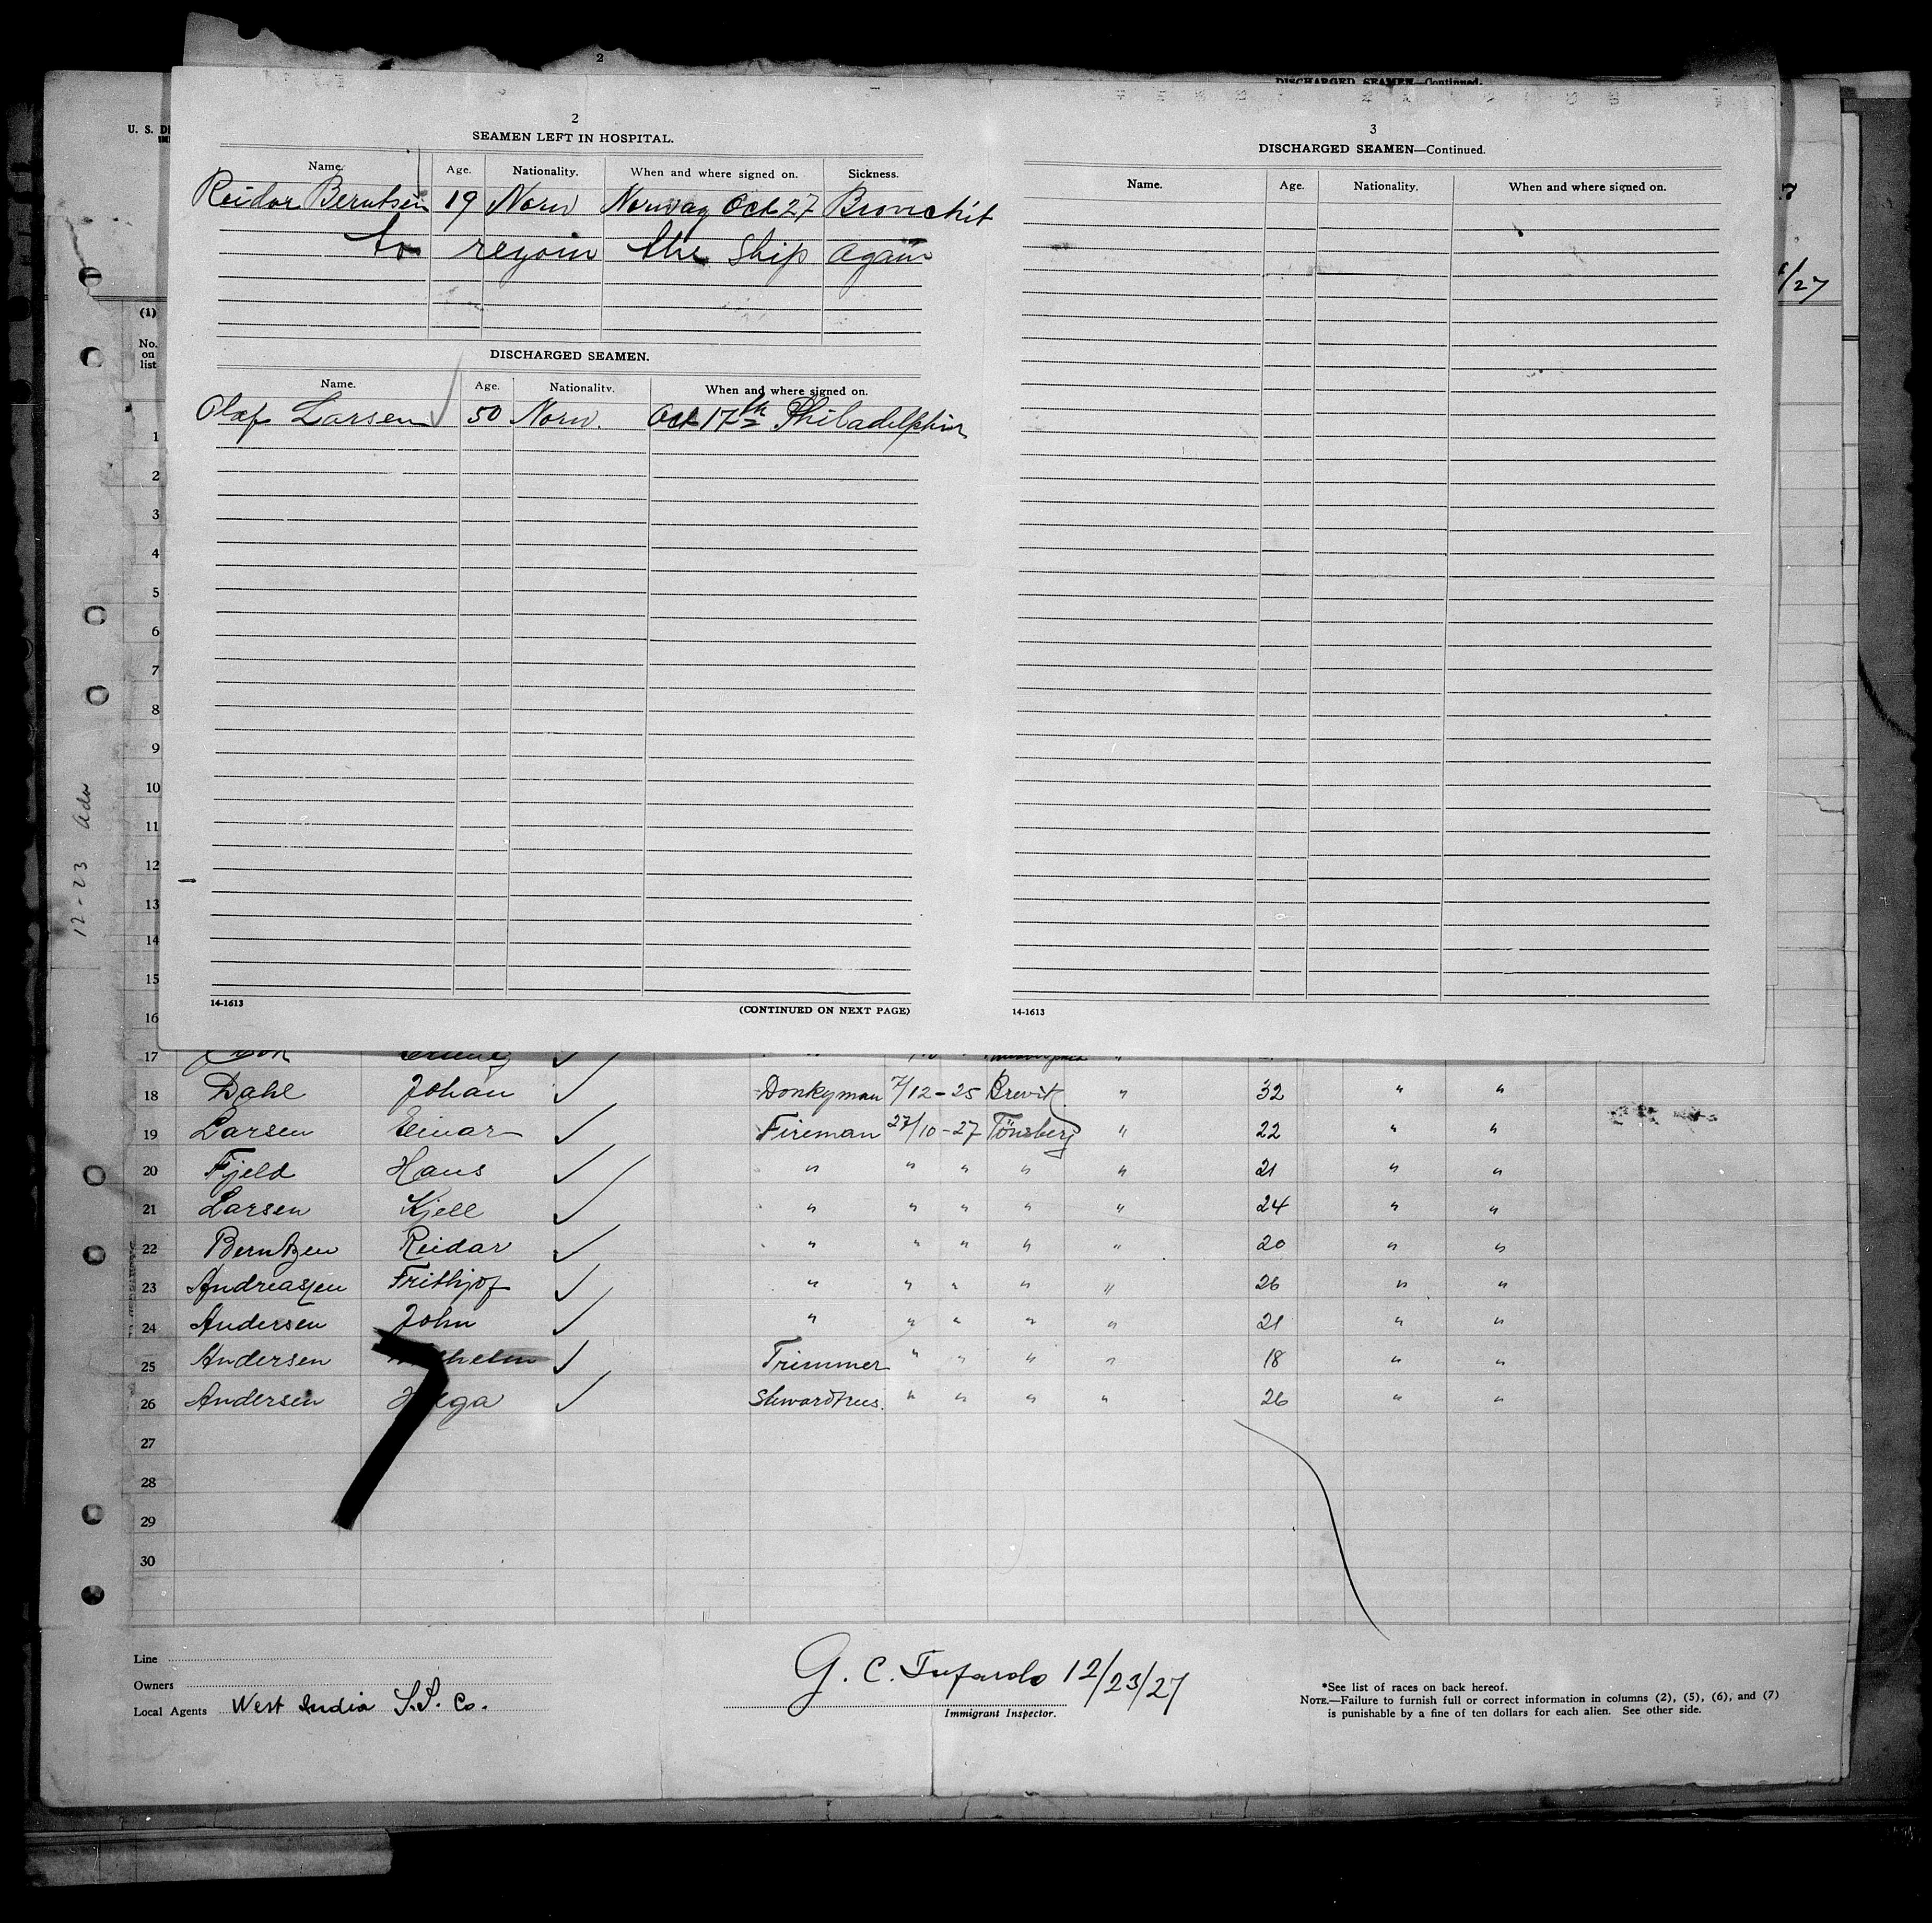 2
DISCHARGED SEAMEN—Continued.
U. S. D
2
SEAMEN LEFT IN HOSPITAL.
Name. Age. Nationality. When and where signed on. Sickness.
Reidar Berntsen 19 Norw Norway Oct 27 Bronchit
to rejoin the ship again
DISCHARGED SEAMEN.
Name. Age. Nationality. When and where signed on.
Olaf Larsen 50 Norw. Oct 17th Philadelphia
14-1613
(CONTINUED ON NEXT PAGE)
3
DISCHARGED SEAMEN—Continued.
Name. Age. Nationality. When and where signed on.
14-1613
7
/27
(1)
No. on list
1
2
3
4
5
6
7
8
9
10
11
12
13
14
15
16
12-23
17
18 Dahl Johan Donkyman 7/12-25 Brevik " 32 " "
19 Larsen Einar Fireman 27/10-27 Tönsberg " 22 " "
20 Fjeld Hans " " " " " 21 " "
21 Larsen Kjell " " " " " 24 " "
22 Berntzen Reidar " " " " " 20 " "
23 Andreassen Frithjof " " " " " 26 " "
24 Andersen John " " " " " 21 " "
25 Andersen Trimmer " " " " 18 " "
26 Andersen " " " " 26 " "
27
28
29
30
7
Line
Owners
Local Agents West India S.S. Co.
G. C. Tufarolo 12/23/27
Immigrant Inspector.
*See list of races on back hereof.
NOTE.—Failure to furnish full or correct information in columns (2), (5), (6), and (7)
is punishable by a fine of ten dollars for each alien. See other side.